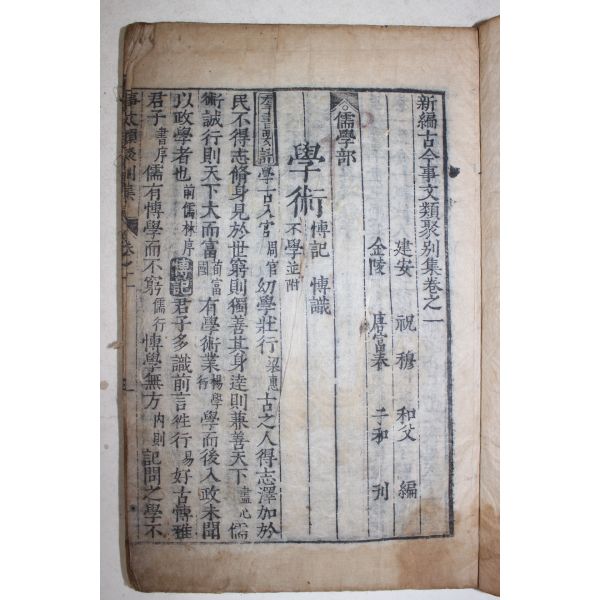 新編古今事文類聚別集卷之一
建安 祝穆 和父 編
金陵 唐富春 子和 刊
儒學部
學術 博記 博識 不學並附
羣書要語學古入官周官幼學壯行梁惠古之人得志澤加於
民不得志脩身見於世窮則獨善其身達則兼善天下盡心儒
術誠行則天下大而富荀富國有學術業揚學行學而後入政未聞
以政學者也前儒林序博記君子多識前言徃行易好古博雅
君子書序儒有博學而不窮儒行博學無方內則記問之學不
事文類聚別集 卷之一